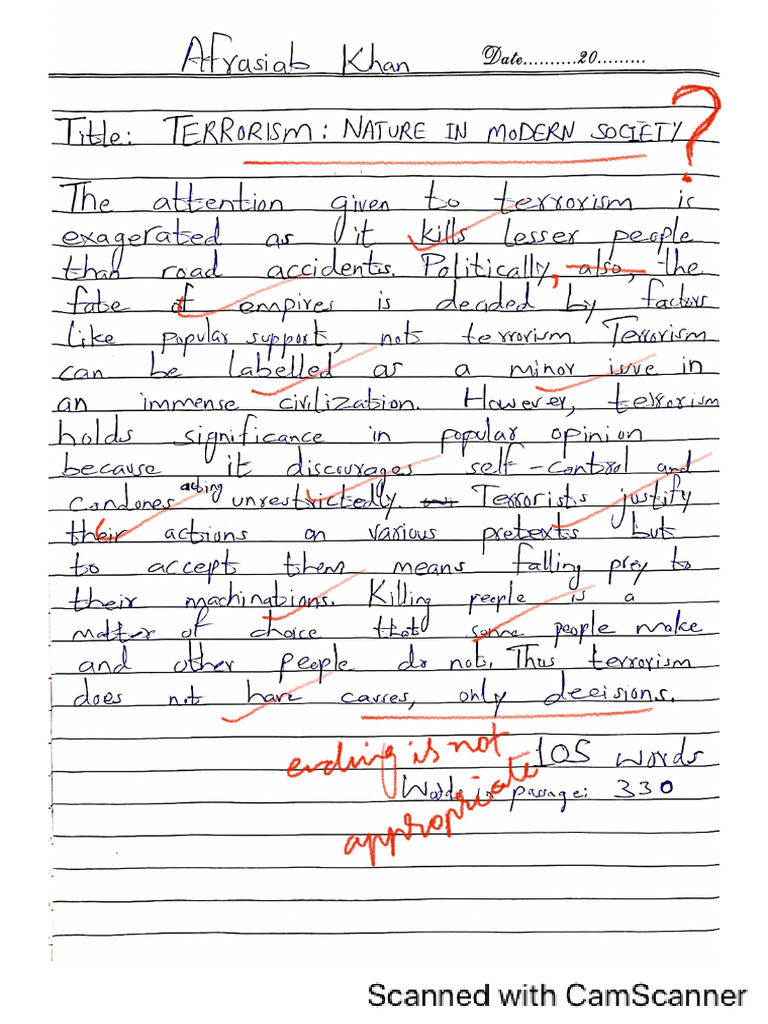 Afrasiab Khan Date..........20.........
Title: TERRORISM: NATURE IN MODERN SOCIETY ?
The attention given to terrorism is
exagerated as it kills lesser people
than road accidents. Politically, also, the
fate of empires is decided by factors
like popular support, not terrorism. Terrorism
can be labelled as a minor issue in
an immense civilization. However, terrorism
holds significance in popular opinion
because it discourages self-control and
condones acting unrestrictedly. Terrorists justify
their actions on various pretexts but
to accept them means falling prey to
their machinations. Killing people is a
matter of choice that some people make
and other people do not. Thus terrorism
does not have causes, only decisions.
ending is not
appropriate
105 words
Words in passage: 330
Scanned with CamScanner